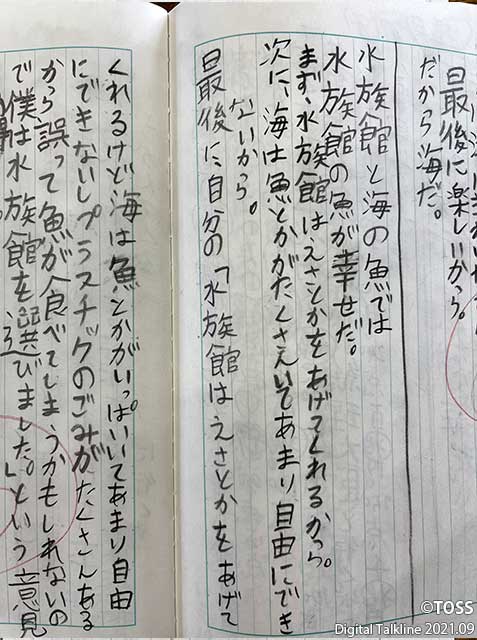 最後に楽しいから。
だから海だ。
水族館と海の魚では
水族館の魚が幸せだ。
まず、水族館はえさとかをあげてくれるから。
次に、海は魚とかがたくさんいてあまり自由にでき
ないから。
最後に自分の「水族館はえさとかをあげて
くれるけど海は魚とかがいっぱいいてあまり自由
にできないしプラスチックのごみがたくさんある
から誤って魚が食べてしまうかもしれないの
で僕は水族館を選びました。」という意見
©TOSS
Digital Talkline 2021.09